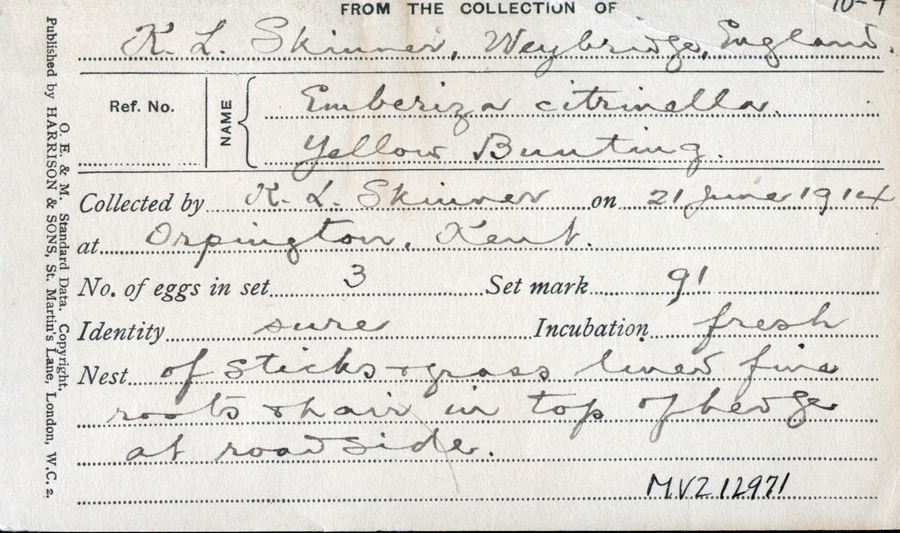 FROM THE COLLECTION OF
K. L. Skinner, Weybridge, England.
Ref. No.
NAME
Emberiza citrinella.
Yellow Bunting.
Collected by K. L. Skinner on 21 June 1914
at Orpington, Kent.
No. of eggs in set 3 Set mark 91
Identity sure Incubation fresh
Nest of sticks & grass lined fine
roots & hair in top of hedge
at roadside.
MVZ 12971
O. E. & M. Standard Data. Copyright.
Published by HARRISON & SONS, St. Martin's Lane, London, W.C. 2.